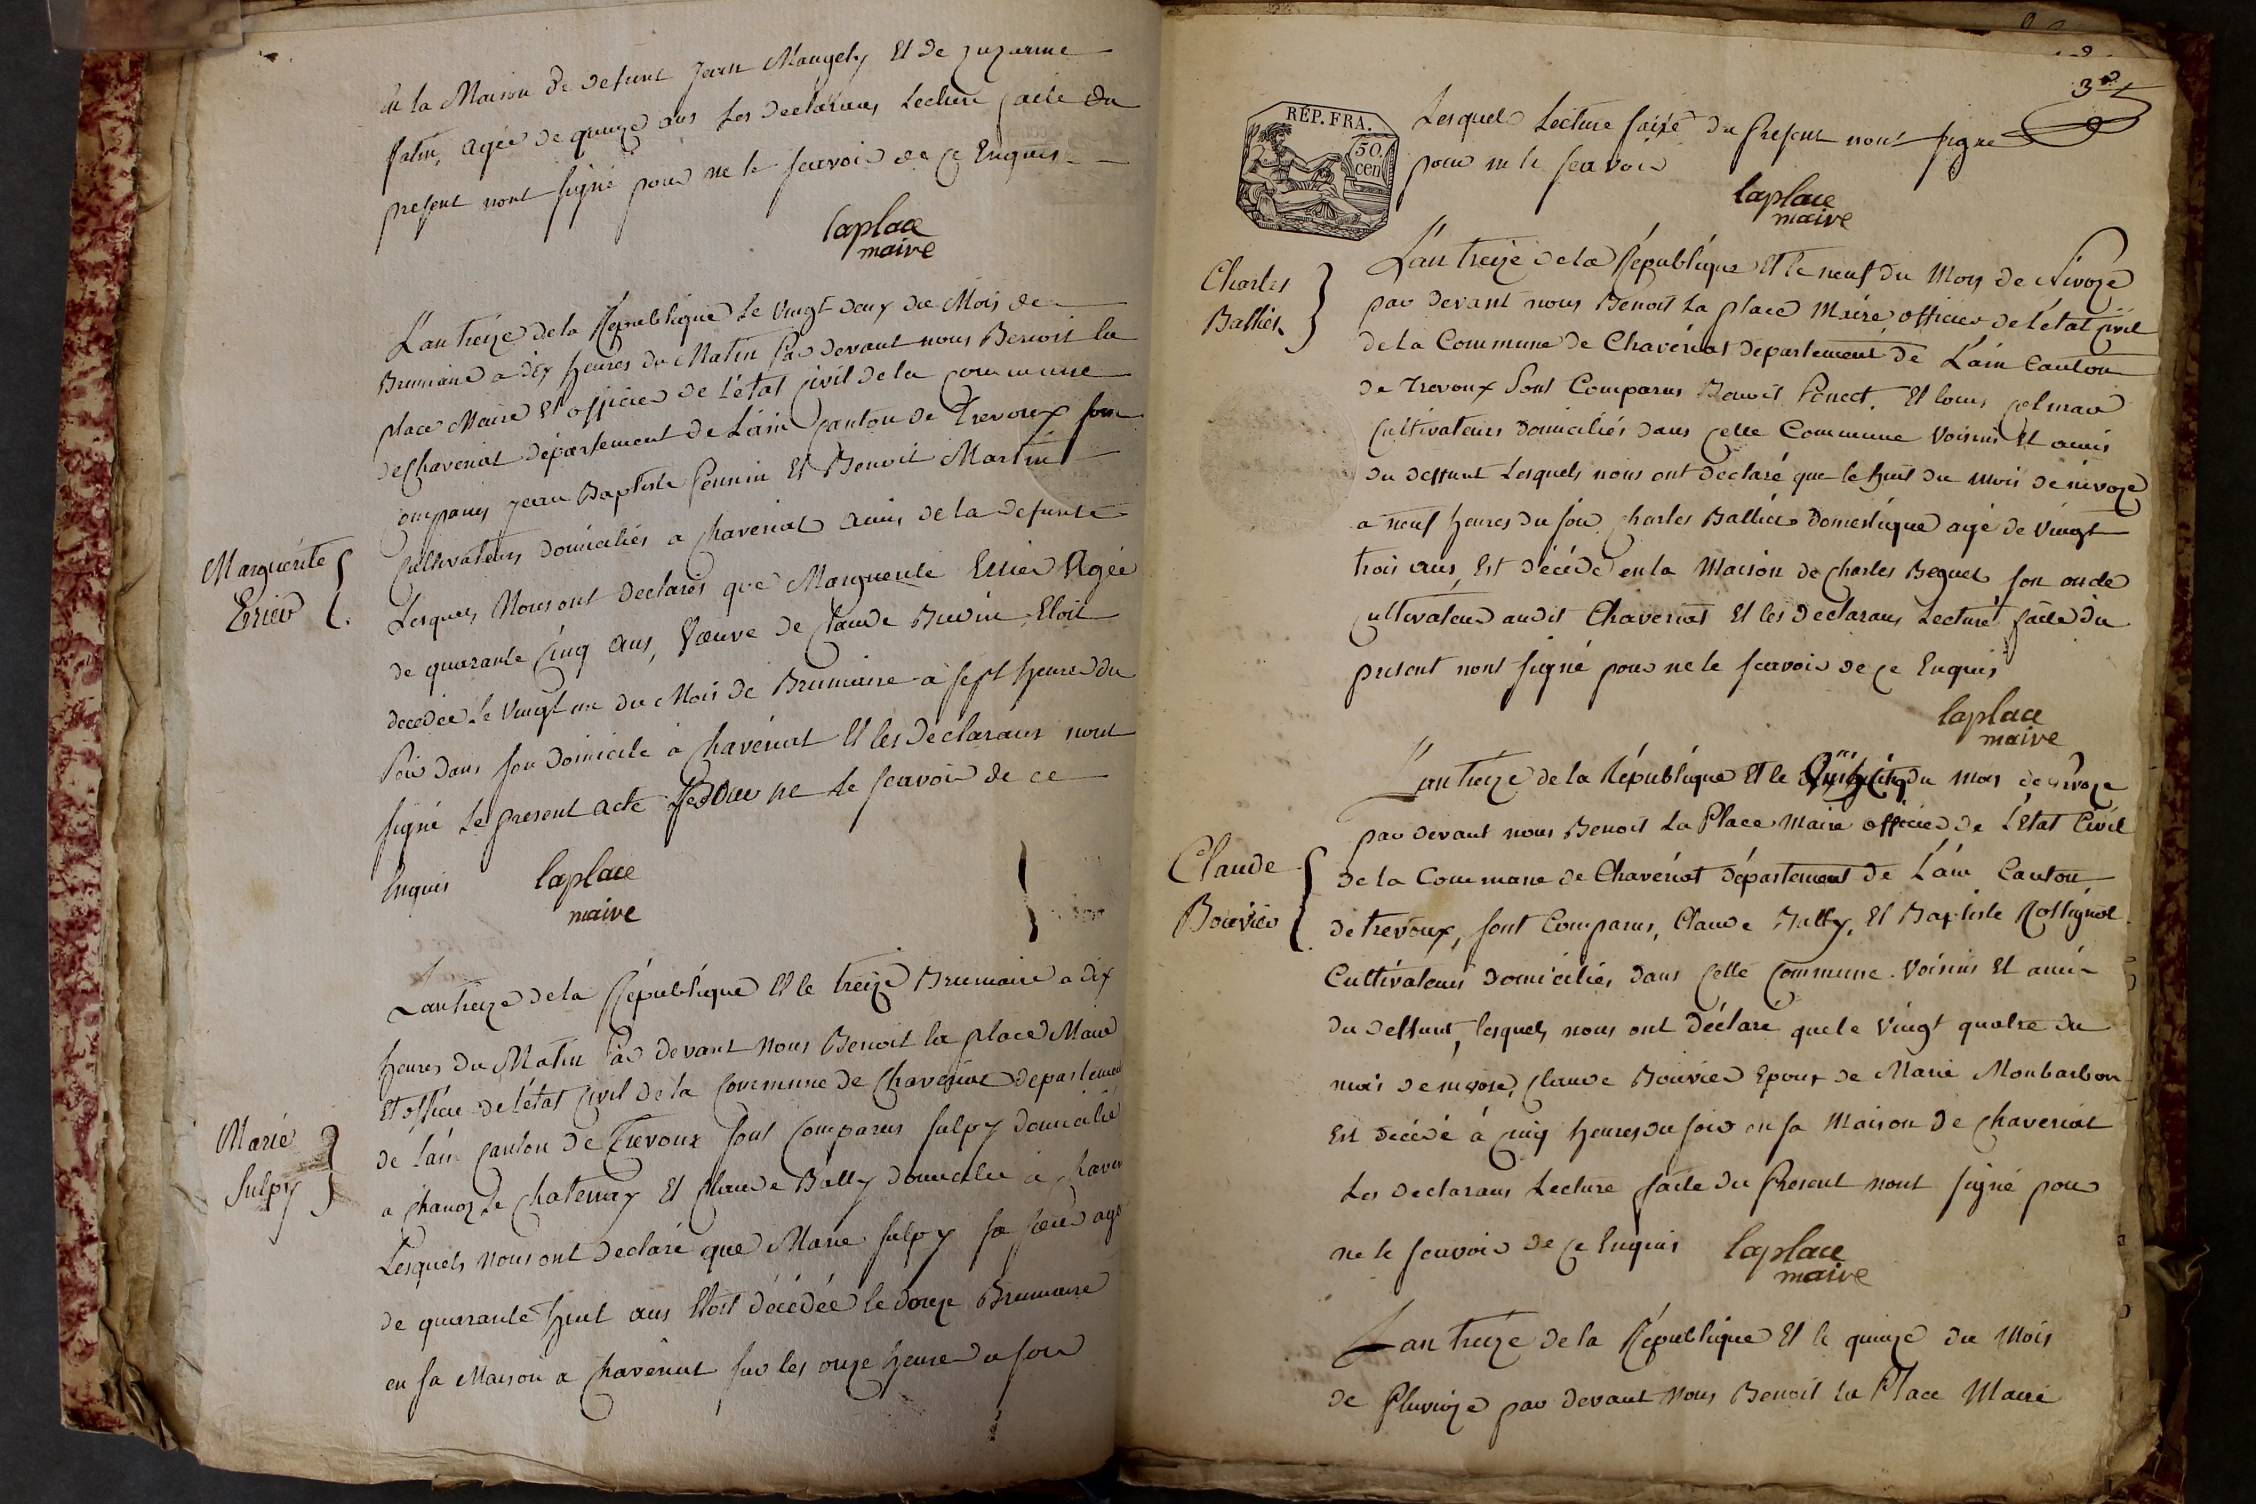 en la Maison de defunt jean Maugely Et de Suzanne
fatin, agée de quinze ans Les declarans, Lecture faite du
present nont signé pour ne le scavoir de ce Enquis
laplace
maire
L'an treize de la Republique Le Vingt deux du Mois de
Brumaire a dix heures du Matin Par devant nous Benoit la
place Maire Et officier de L'état Civil de la Commune
de Chaveriat département de L'ain Canton de Trevoux sont
comparus jean Baptiste Pennin Et Benoit Martin
Cultivateurs domiciliés a Chaveriat amis de la defunte
Marguérite
Errier
Lesquels Nous ont declarés que Marguerite Errier Agée
de quarante Cinq ans, Veuve de Claude Etoit
decedée Le Vingt un du Mois de Brumaire a sept heures du
soir dans son domicile à Chavériat Et les déclarans nont
signé Le present acte pour ne le scavoir de ce
Enquis laplace
maire
L'an treize de la République Et le treize Brumaire a dix
heures du Matin Par devant Nous Benoit la place Maire
Et officier de L'état Civil de la Commune de Chaveriat departement
de L'ain Canton de Trevoux sont Comparus Sulpy domicilié
Marie
Sulpy
a Chanoz Le Chatenay Et Claude Bally domicilié a Chaver
Lesquels Nous ont declaré que Marie Sulpy sa soeur agé
de quarante huit ans Etoit décédée le douze Brumaire
en sa Maison a Chavériat sur les onze heures du soir
3
RÉP. FRA.
50
cen
Lesquels Lecture faite du Present nont signé
pour ne le scavoir
laplace
maire
Charles
Ballier
L'an treize de la République Et le neuf du Mois de Nivoze
par devant nous Benoit La place Maire officier de l'état Civil
de La Commune de Chavériat département de L'ain Canton
de Trevoux Sont Comparus Benoit Et
Cultivateurs domiciliés dans Cette Commune Voisins Et amis
du deffunt Lesquels nous ont déclaré que le huit du mois de nivoze
a neuf heures du soir Charles Ballier domestique agé de Vingt
trois ans, Est décédé en la Maison de Charles Beguet son oncle
Cultivateur audit Chaveriat Et les declarans Lecture faite du
present nont signé pour ne le scavoir de ce Enquis
laplace
maire
L'an treize de la République Et le du mois de nivoze
par devant nous Benoit La Place Maire officier de L'état Civil
Claude
Bouvier
de la Commune de Chavériat département de L'ain Canton
de trevoux, sont Comparus, Claude Bally, Et Baptiste Rossignol
Cultivateurs domiciliés dans Cette Commune. Voisins Et amis
du deffunt, lesquels nous ont déclaré que le Vingt quatre du
mois de nivose, Claude Bouvier Epoux de Marie Monbarbon
Est décédé à Cinq heures du soir en sa Maison de Chaveriat
Les declarans Lecture faite du Present nont signé pour
ne le scavoir de Ce Enquis laplace
maire
L'an treize de la République Et le quinze du Mois
de Pluvioze par devant Nous Benoit La Place Maire